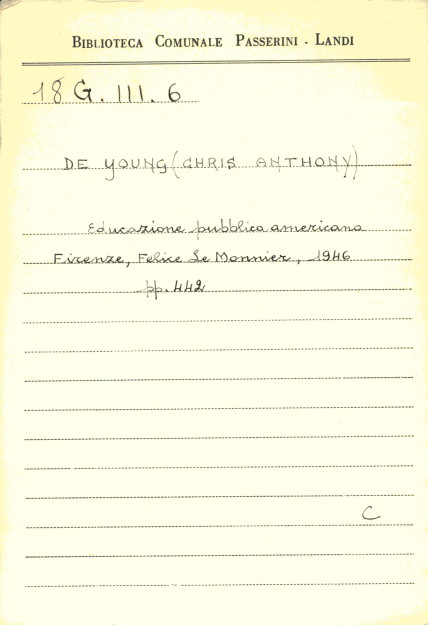 BIBLIOTECA COMUNALE PASSERINI - LANDI
18 G. III. 6
DE YOUNG (CHRIS ANTHONY)
Educazione pubblica americana
Firenze, Felice Le Monnier, 1946
pp. 442
C